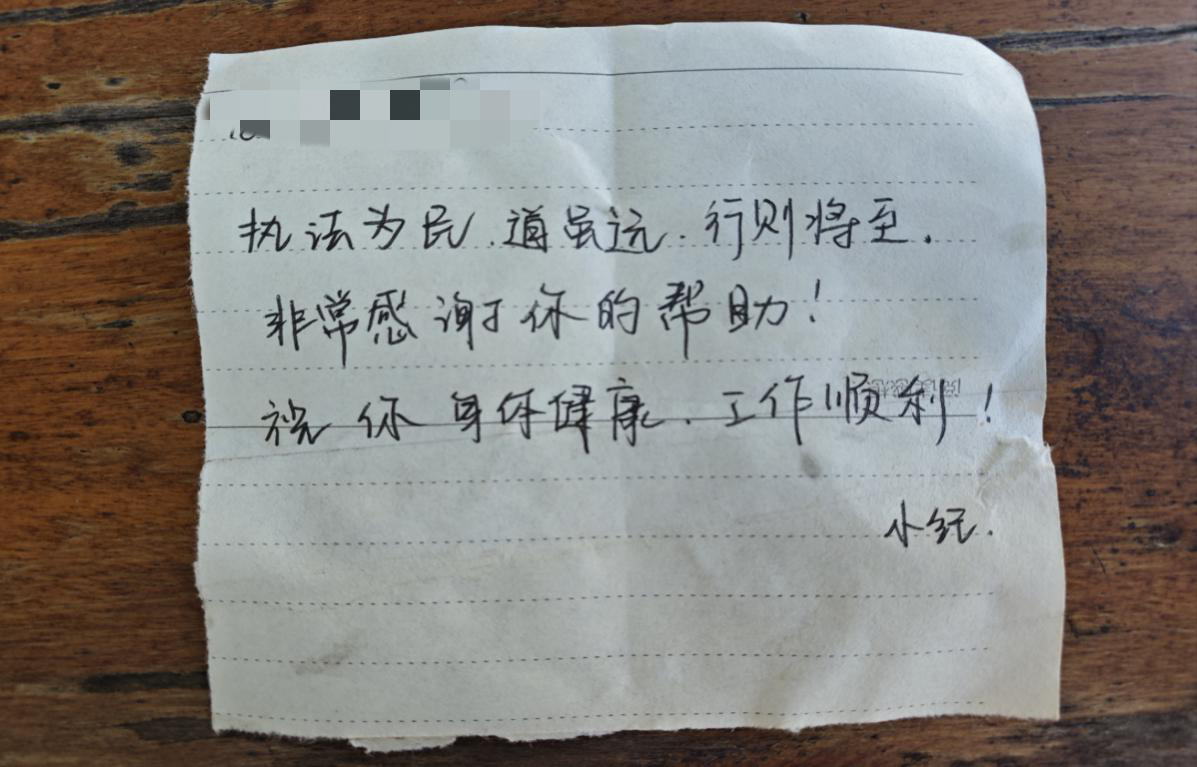 执法为民.道虽远.行则将至.
非常感谢你的帮助!
祝你身体健康.工作顺利!
小纪.